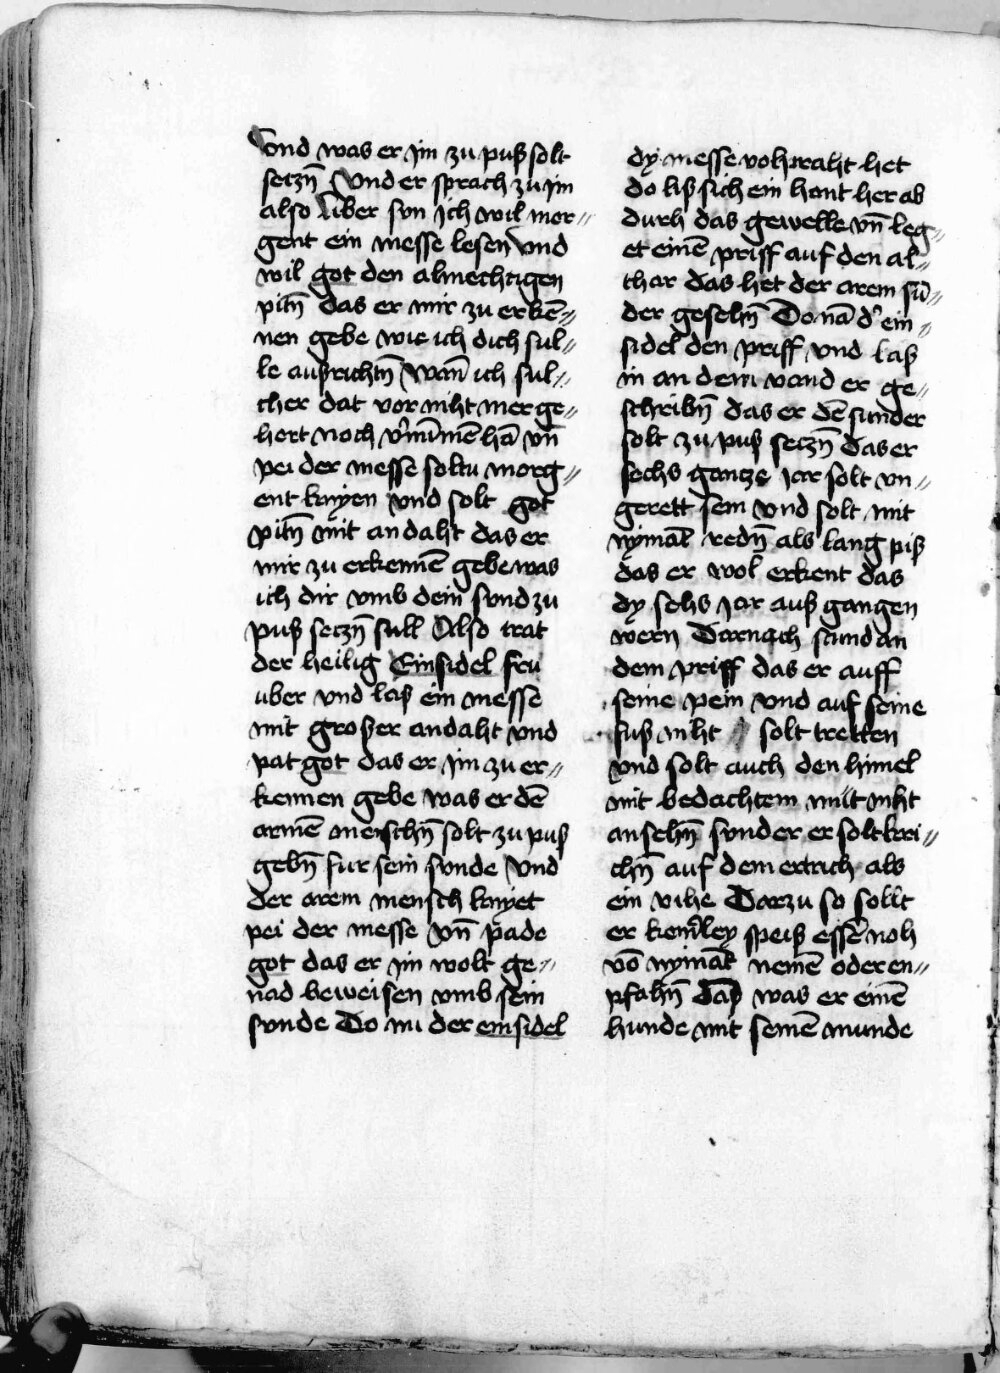 Vnd was er jm zu puß solt
seczn̄ Vnd er sprach zu jm
also liber svn jch wil mor〃
gent ein messe lesen vnd
wil got den almechtigen
pitn̄ das er mir zu erkē〃
nen gebe wie ich dich sul〃
le außrichtn̄ wan̄ ich sul〃
cher dat vor niht mer ge〃
hort noch v'nūmen hā vn̄
pei der messe soltu morg〃
ent knyen vnd solt got
pitn̄ mit andaht das er
mir zu erkennē gebe was
ich dir vmb dein svnd zu
puß seczn̄ sull Also trat
der heilig Einsidel fru
uber vnd las ein messe
mit großer andaht vnd
pat got das er jm zu er〃
kennen gebe was er dē
armē menschn̄ solt zu puß
gebn̄ fur sein svnde Vnd
der arem mensch knyet
pei der messe vn̄ pade
got das er jm wolt ge〃
nad beweisen vmb sein
svnde Do nu der einsidel
dy messe volpraht het
do liß sich ein hant her ab
durh das gewelle vn̄ leg〃
et einē priff auf den al〃
thar das het der arem sū〃
der gesehn̄ Do nā d' ein〃
sidel den priff vnd laß
in an dem vand er ge〃
schribn̄ das er dē sunder
solt zu puß seczn̄ das er
sechs gancze jar solt vn〃
gerett sein vnd solt mit
nymāt redn̄ als lang piß
das er wol erkent das
dy sehs jar auß gangen
wern Darnach stund an
dem priff das er auff
seine pein vnd auf seine
fuß niht solt tretten
vnd solt auch den himel
mit bedachtem mut niht
ansehn̄ svnder er solt kri〃
chn̄ auf dem ertrich als
ein vihe Darzu so sollt
er kein'ley speiß essē noh
vō nymāt nemē oder en〃
pfahn̄ dāß was er einē
hunde mit seinē munde